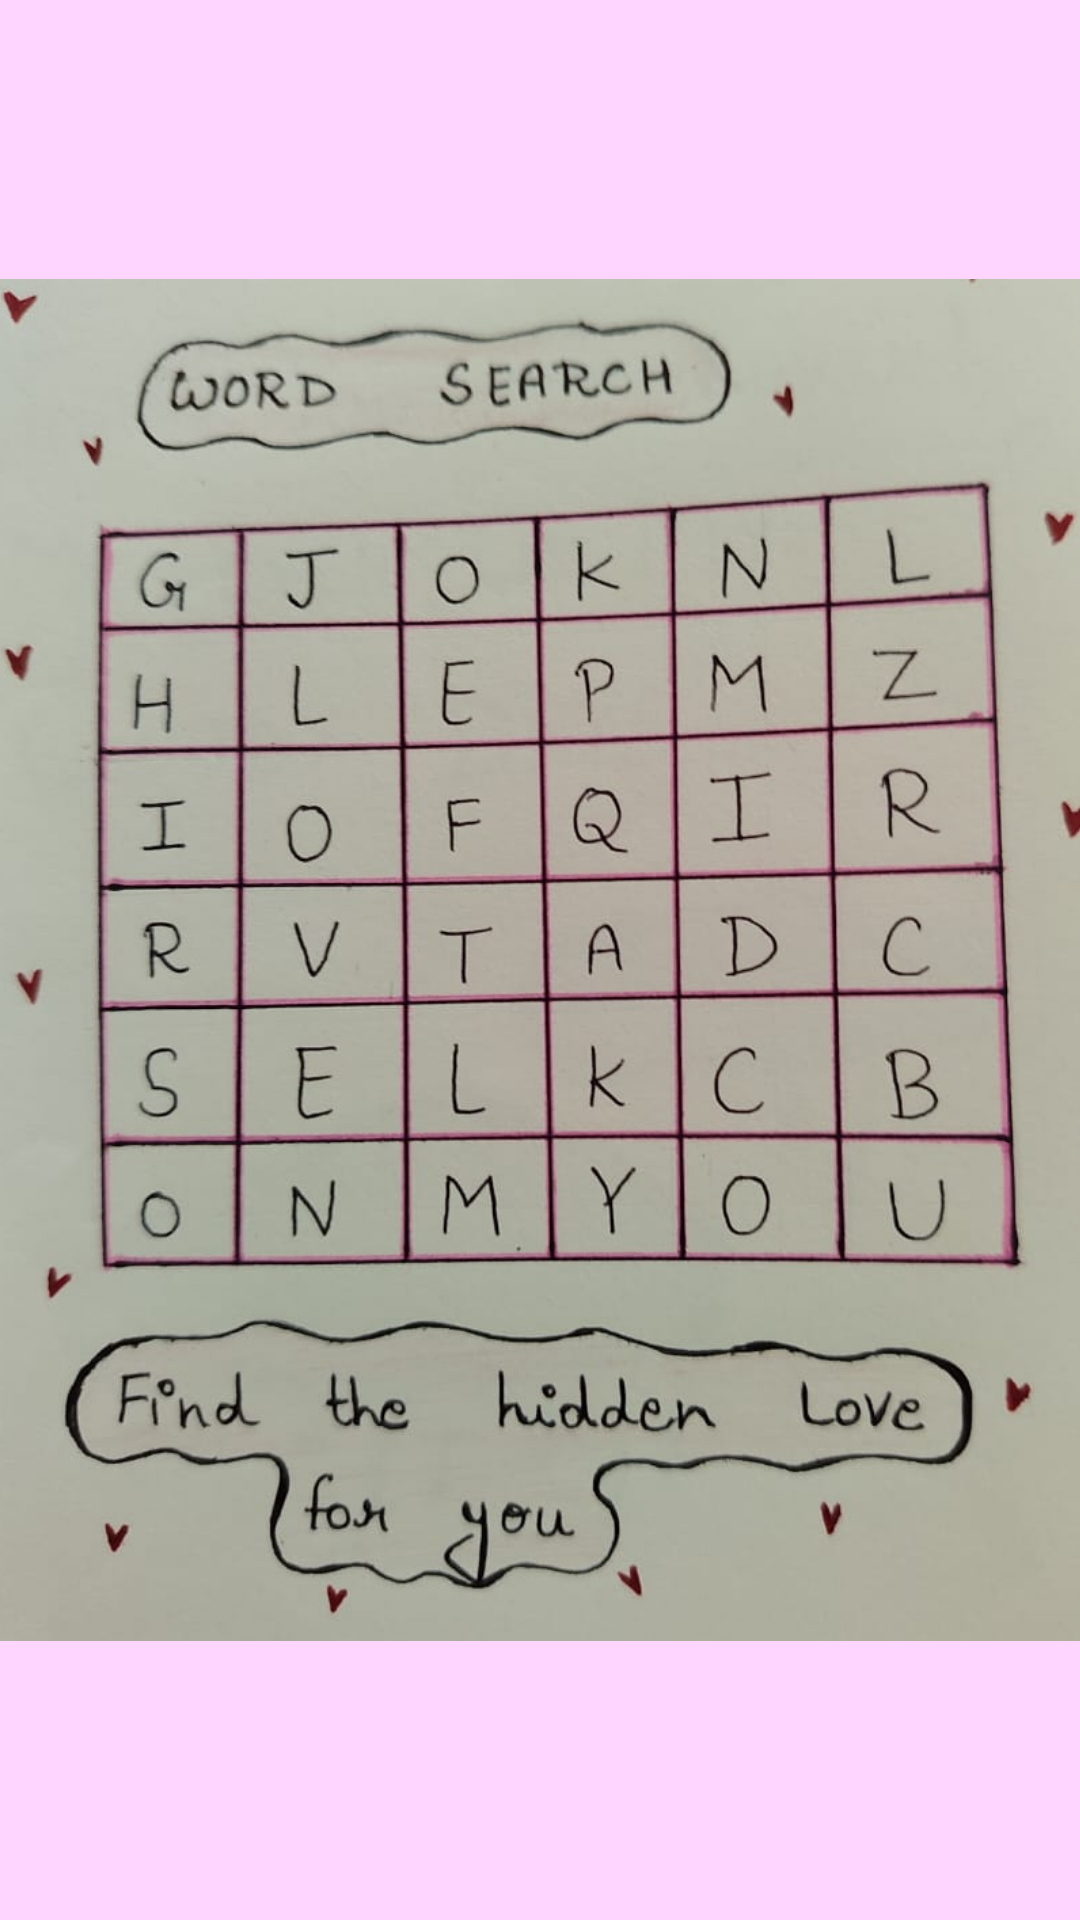 WORD SEARCH
G J O K N L
H L E P M Z
I O F Q I R
R V T A D C
S E L K C B
O N M Y O U
Find the hidden Love
for you